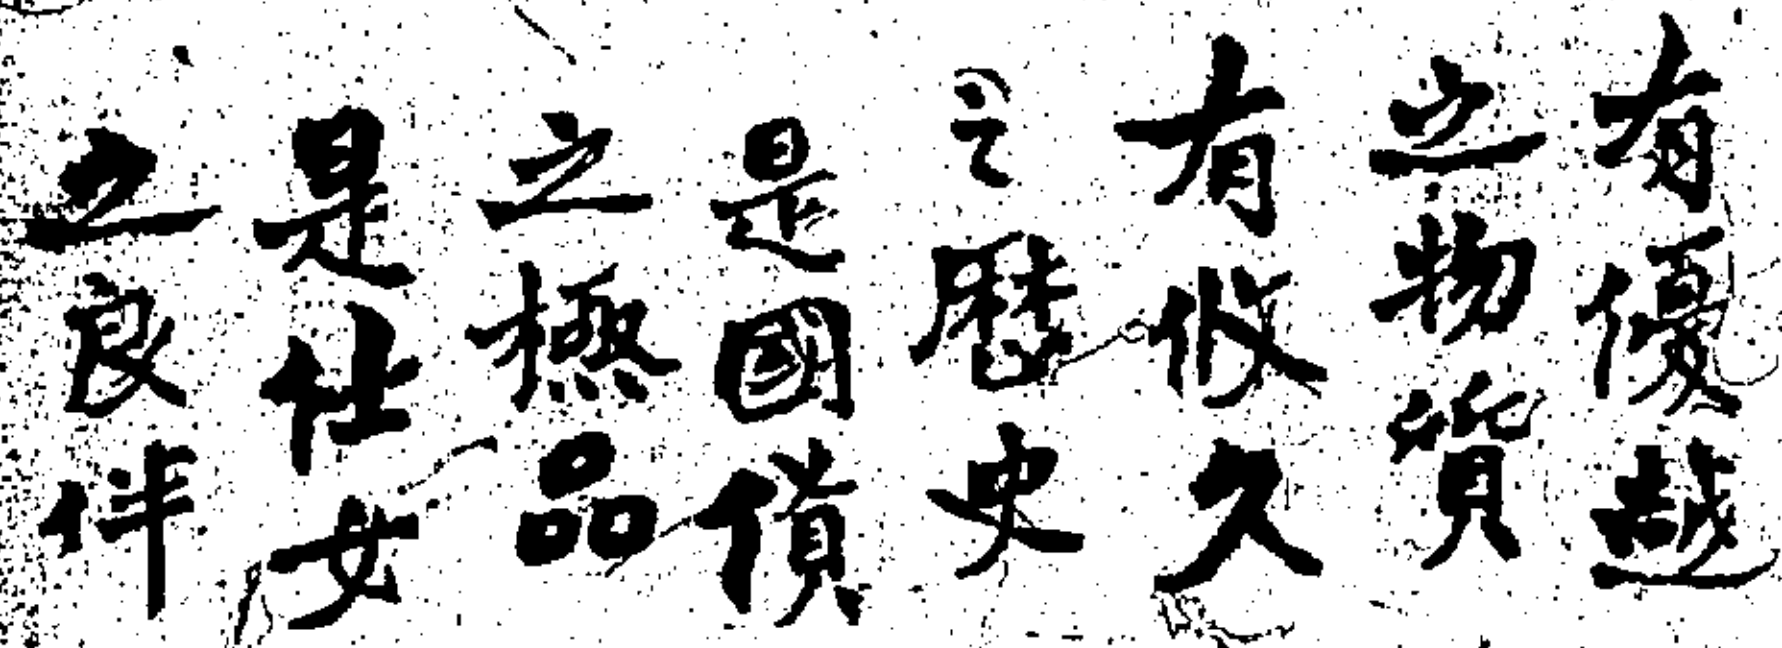 有優越
之物貨
有攸久
之歷史
是國債
之極品
是仕女
之良伴